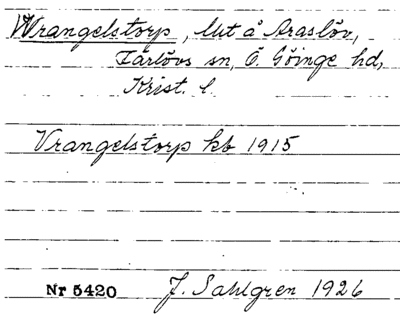 Wrangelstorp, lht å Araslöv,
Färlövs sn, Ö. Göinge hd,
Krist. l.
Vrangelstorp kb 1915
Nr 5420 J. Sahlgren 1926